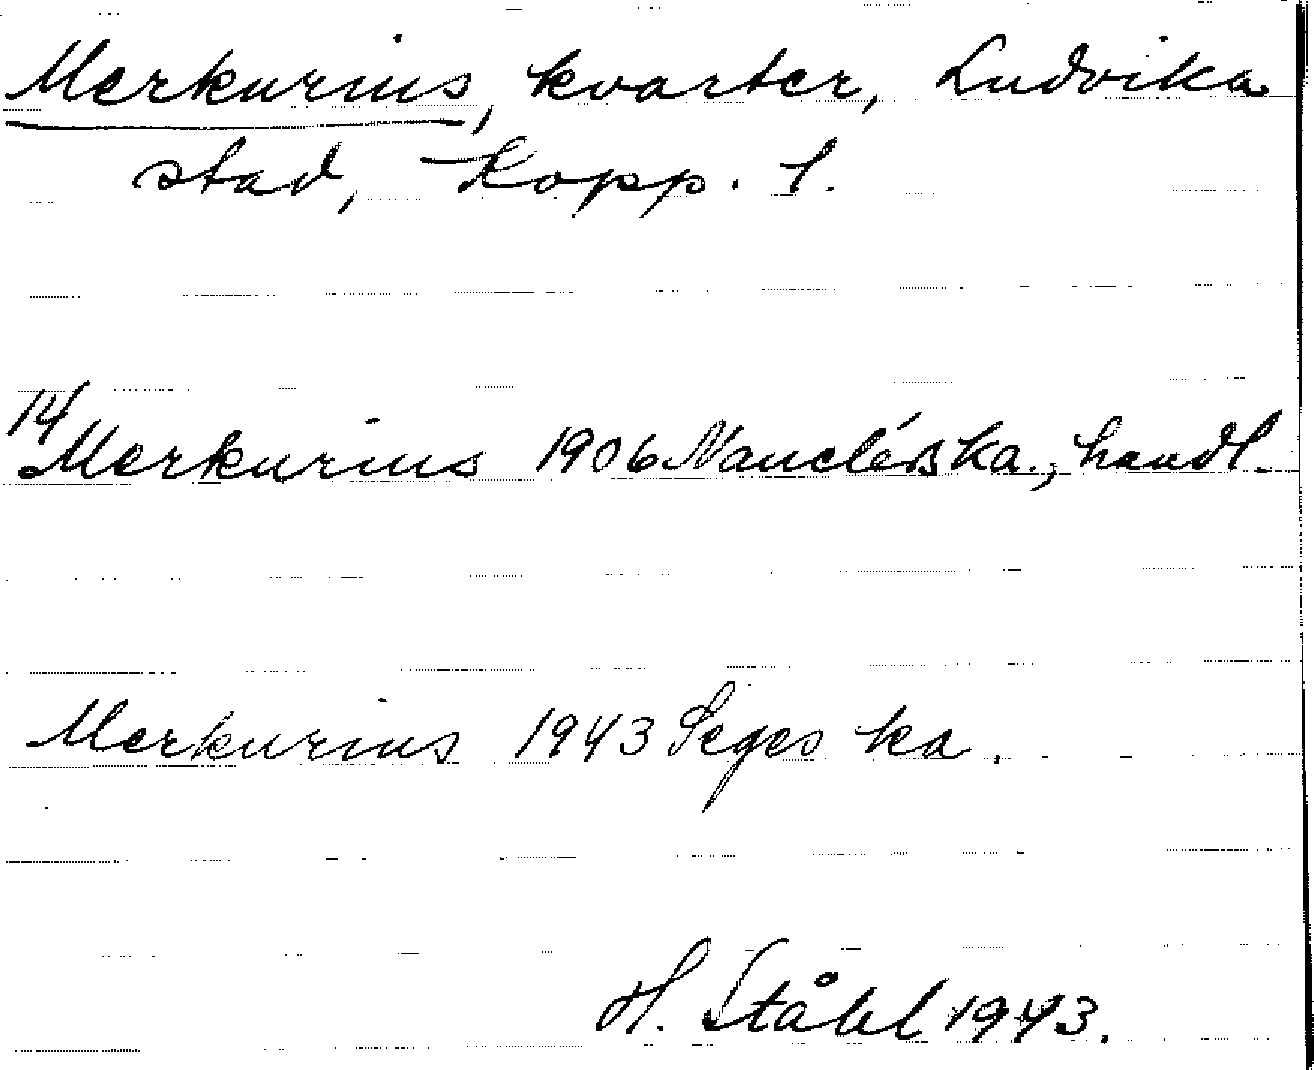 Merkurius, kvarter, Ludvika
stad, Kopp. l.
14/ Merkurius 1906 Nauclérs ka., handl.
Merkurius 1943 Seges ka.
H. Ståhl 1943.